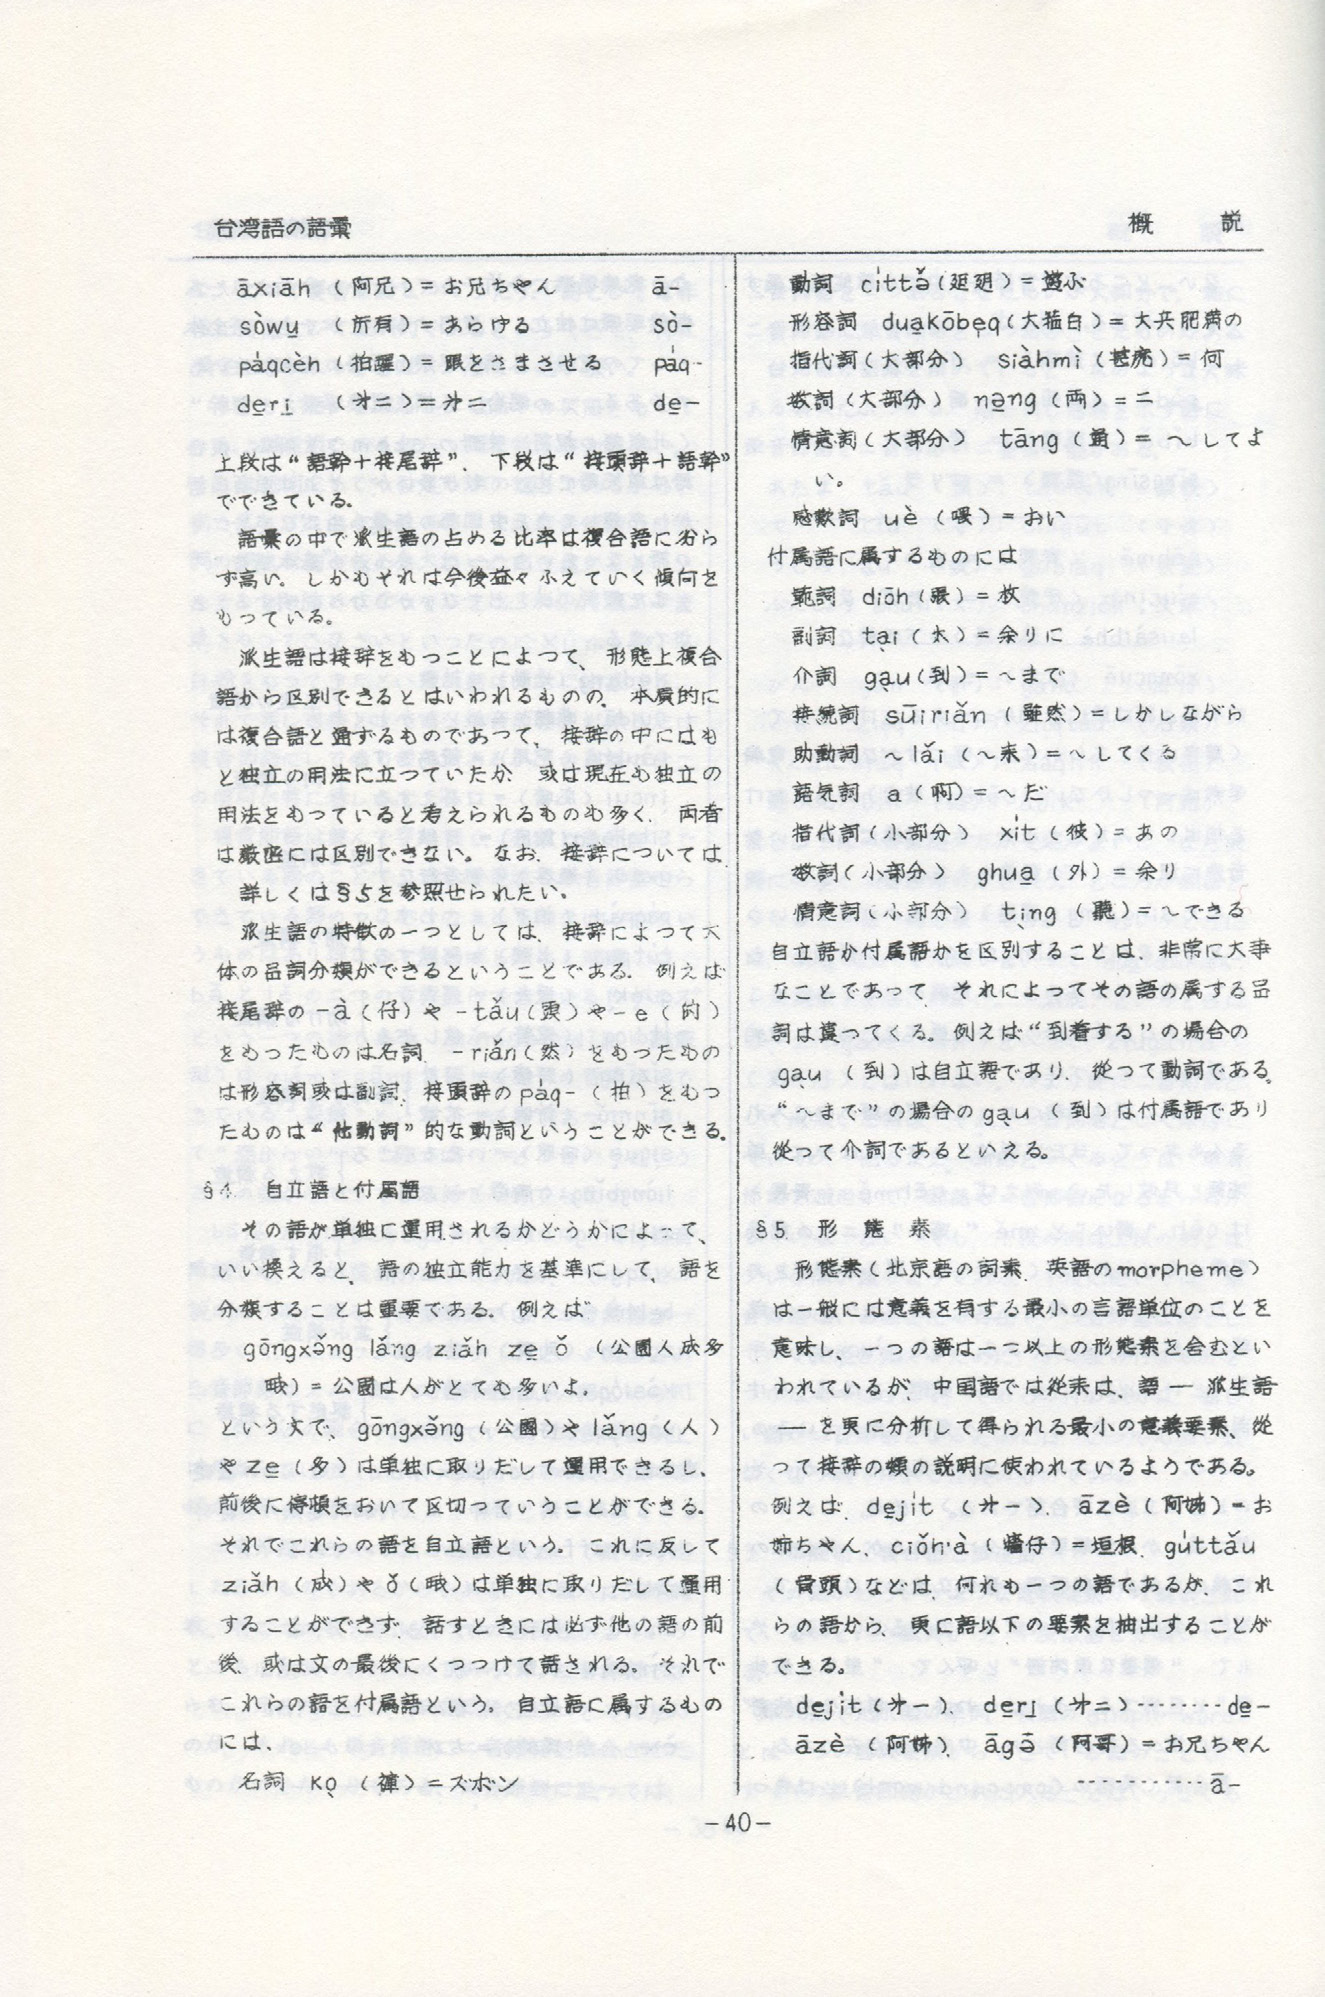 台湾語の語彙
概　説
āxiāh（阿兄）＝お兄ちゃん　ā-
sòwu̱（所有）＝あらゆる　sò-
pa̍qcèh（拍醒）＝眼をさまさせる　pa̍q-
de̱ri̱（㐧二）＝㐧二　de̱-
上段は“語幹＋接尾辞”，下段は“接頭辞＋語幹”
でできている。
語彙の中で派生語の占める比率は複合語に劣ら
ず高い。しかもそれは今後益々ふえていく傾向を
もっている。
派生語は接辞をもつことによつて、形態上複合
語から区別できるとはいわれるものの、本質的に
は複合語と通ずるものであつて、接辞の中にはも
と独立の用法に立つていたか、或は現在も独立の
用法をもっていると考えられるものも多く、両者
は厳密には区別できない。なお、接辞については、
詳しくは§5を参照せられたい。
派生語の特徴の一つとしては、接辞によつて大
体の品詞分類ができるということである。例えば
接尾辞の-à（仔）や-tǎu（頭）や-e（的）
をもったものは名詞、-riǎn（然）をもったもの
は形容詞或は副詞、接頭辞のpa̍q-（拍）をもつ
たものは“他動詞”的な動詞ということができる。
§4．自立語と付属語
その語が単独に運用されるかどうかによって、
いい換えると、語の独立能力を基準にして、語を
分類することは重要である。例えば
gōngxə̌ng lǎng ziǎh ze̱ ǒ（公園人成多
哦）＝公園は人がとても多いよ。
という文で、gōngxə̌ng（公園）やlǎng（人）
やze̱（多）は単独に取りだして運用できるし、
前後に停頓をおいて区切っていうことができる。
それでこれらの語を自立語という。これに反して
ziǎh（成）やǒ（哦）は単独に取りだして運用
することができず、話すときには必ず他の語の前
後、或は文の最後にくつつけて話される。それで
これらの語を付属語という。自立語に属するもの
には、
名詞　kọ（褲）＝ズボン
動詞　ci̍ttə̌（𨑨迌）＝遊ぶ
形容詞　dua̱kōbe̱q（大箍白）＝大兵肥満の
指代詞（大部分）　siàhmì（甚麽）＝何
数詞（大部分）　nə̱ng（両）＝二
情意詞（大部分）　tāng（通）＝～してよ
い。
感歎詞　uè（喂）＝おい
付属語に属するものには
範詞　diōh（張）＝枚
副詞　tại（太）＝余りに
介詞　gạu（到）＝～まで
接続詞　sūiriǎn（雖然）＝しかしながら
助動詞　～lǎi（～来）＝～してくる
語気詞　a（啊）＝～だ
指代詞（小部分）　xi̍t（彼）＝あの
数詞（小部分）　ghua̱（外）＝余り
情意詞（小部分）　tịng（聽）＝～できる
自立語か付属語かを区別することは、非常に大事
なことであって、それによってその語の属する品
詞は違ってくる。例えば“到着する”の場合の
gạu（到）は自立語であり、従つて動詞である。
“～まで”の場合のgạu（到）は付属語であり
従って介詞であるといえる。
§5．形　態　素
形態素（北京語の詞素、英語のmorpheme）
は一般には意義を有する最小の言語単位のことを
意味し、一つの語は一つ以上の形態素を含むとい
われているが、中国語では従来は、語——派生語
——を更に分析して得られる最小の意義要素、従
つて接辞の類の説明に使われているようである。
例えば、de̱ji̍t（㐧一）、āzè（阿姉）＝お
姉ちゃん、ciǒh·à（墻仔）＝垣根、gu̍ttǎu
（骨頭）などは、何れも一つの語であるが、これ
らの語から、更に語以下の要素を抽出することが
できる。
de̱ji̍t（㐧一）、de̱ri̱（㐧二）………de̱-
āzè（阿姉）、āgə̄（阿哥）＝お兄ちゃん
…………ā-
-40-